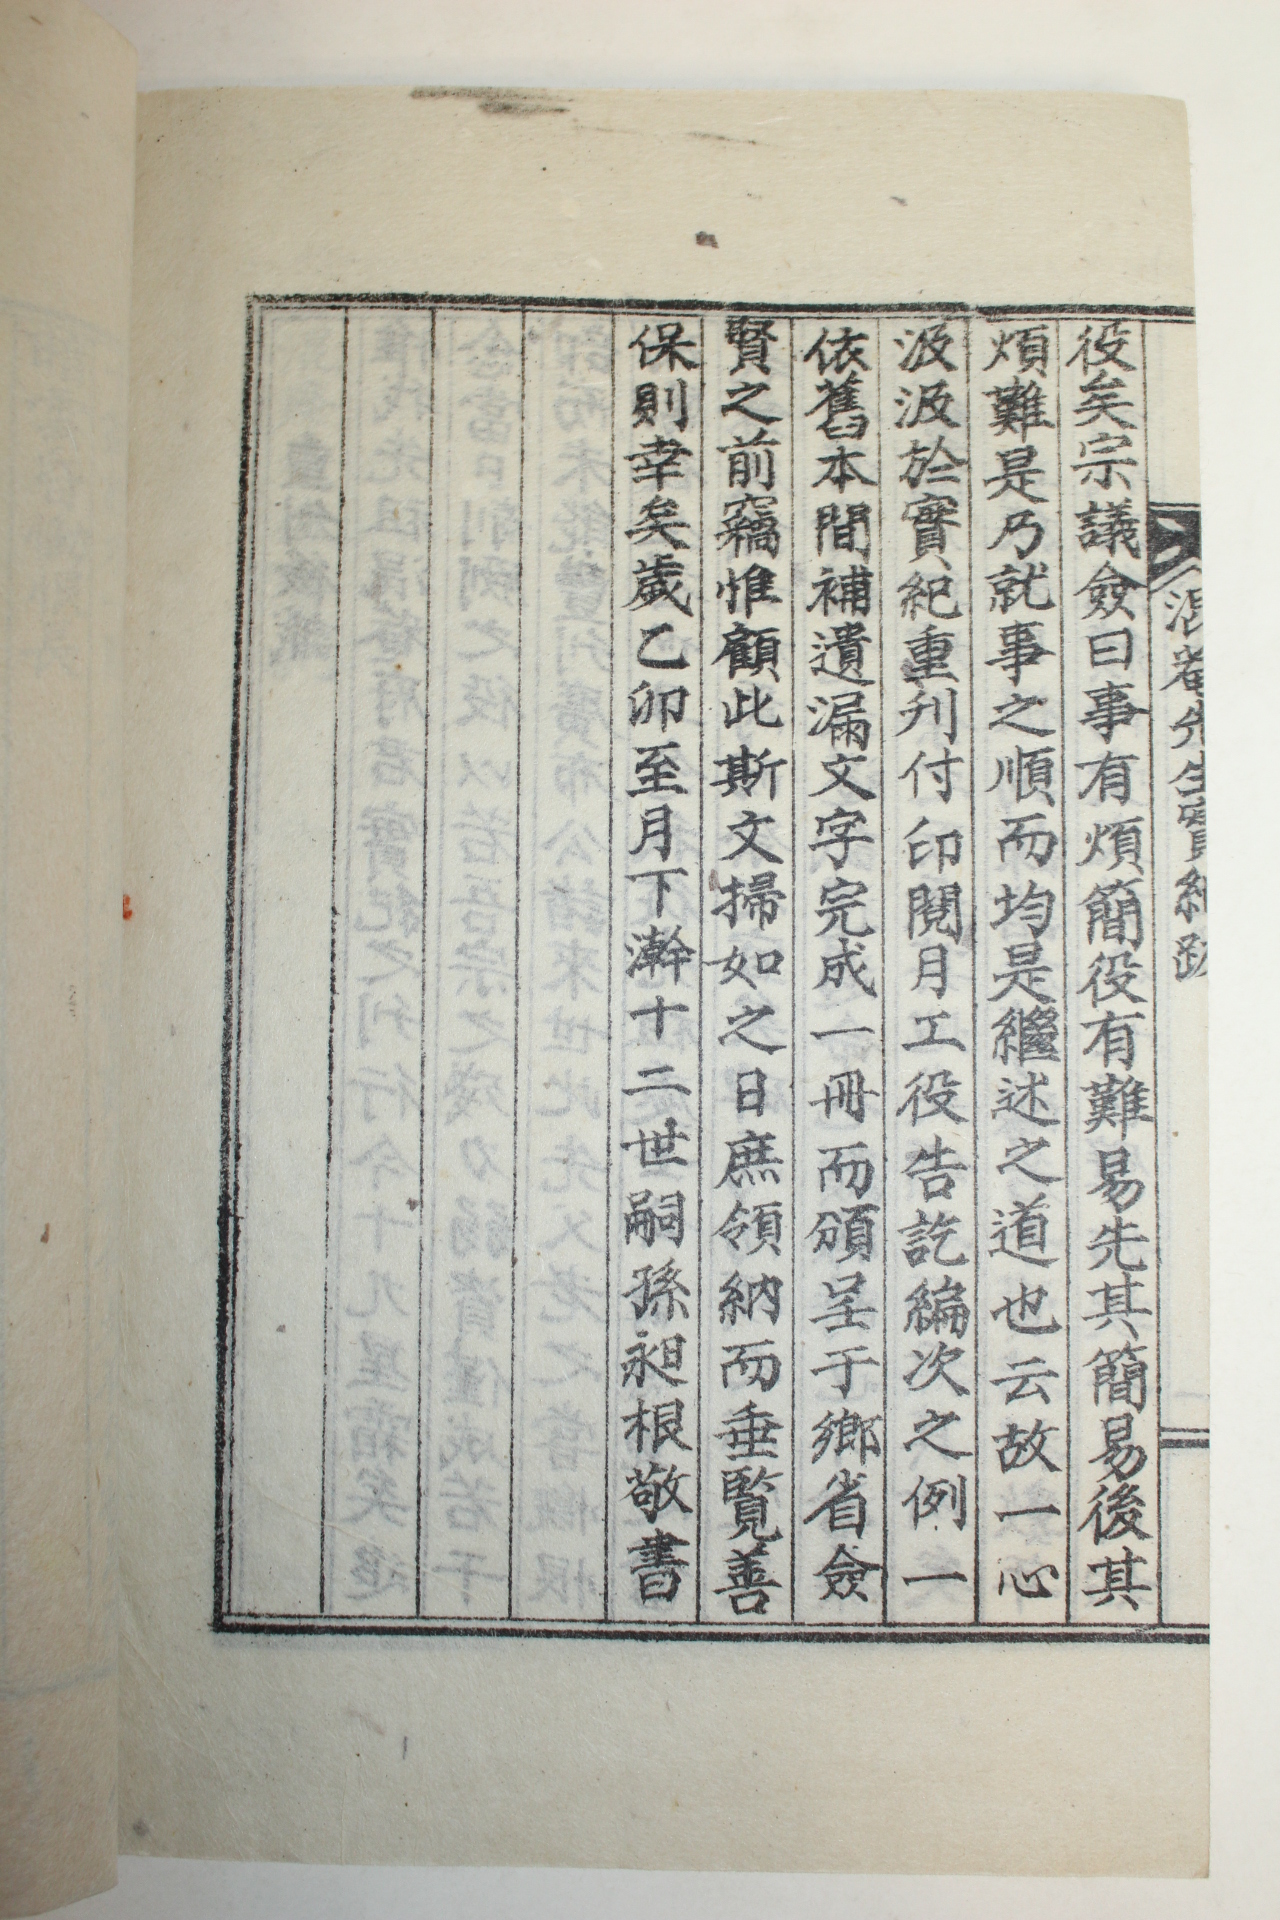 先生實紀跋
役矣宗議僉曰事有煩簡役有難易先其簡易後其
煩難是乃就事之順而均是繼述之道也云故一心
汲汲於實紀重刊付印閱月工役告訖編次之例一
依舊本間補遺漏文字完成一冊而頒呈于鄉省僉
賢之前竊惟顧此斯文掃如之日庶領納而垂覽善
保則幸矣歲乙卯至月下澣十二世嗣孫昶根敬書